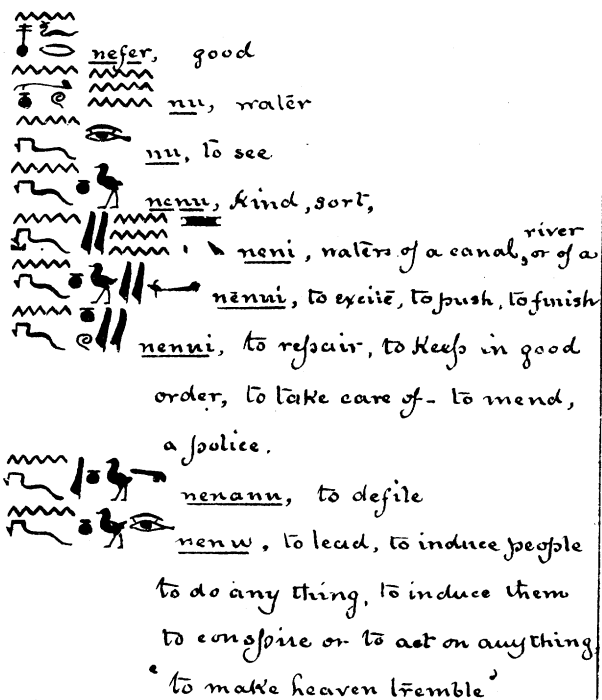 nefer, good
nu, water
nu, to see
nenu, kind, sort,
river
neni, waters of a canal, or of a
nenui, to excite, to push, to finish
nenui, to repair, to keep in good
order, to take care of - to mend,
a police.
nenanu, to defile
nenu, to lead, to induce people
to do any thing, to induce them
to conspire or to act on anything
"to make heaven tremble"